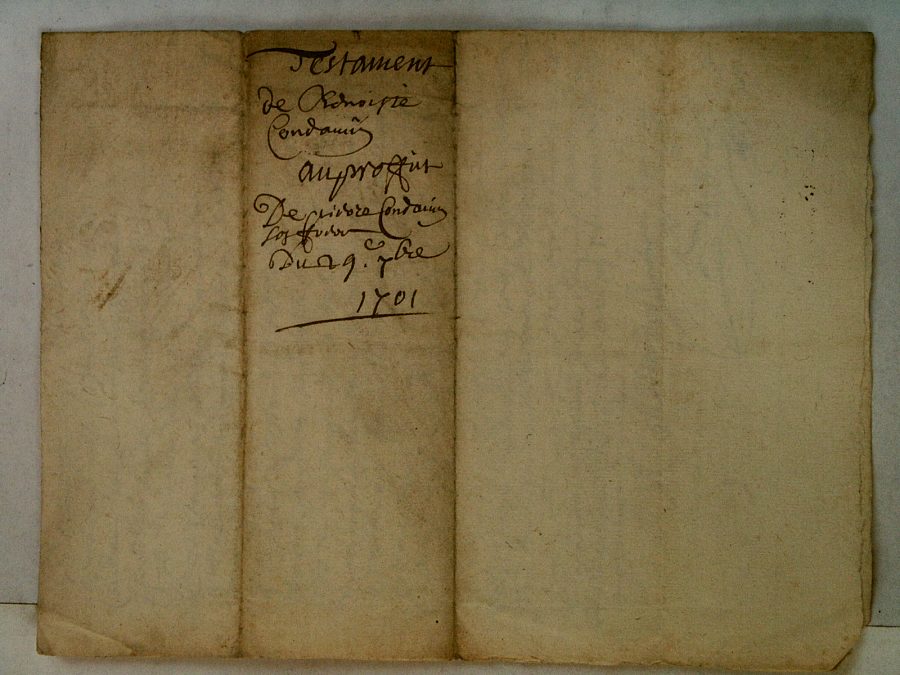 Testament
de Benoiste
Condamin
au proffit
De isidore Condamin
Du 29.e 7bre
1701